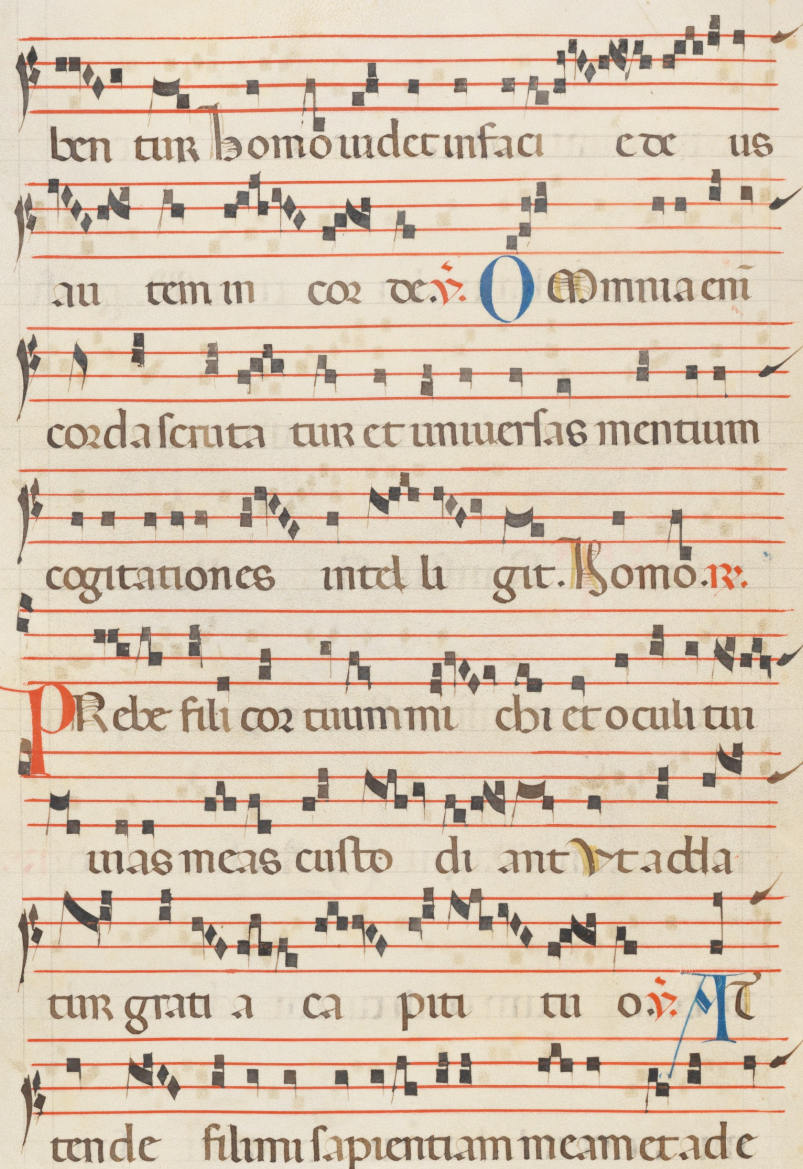 ben tur homo uidet in faci e de us
au tem in cor de. ℣. OMmnia eni̅
corda scruta tur et uniuersas mentium
cogitationes intel li git. Homo. ℟.
PRebe fili cor tuum mi chi et oculi tui
uias meas custo di ant Vt adda
tur grati a ca piti tu o. ℣. AT
tende fili mi sapientiam meam et ad e